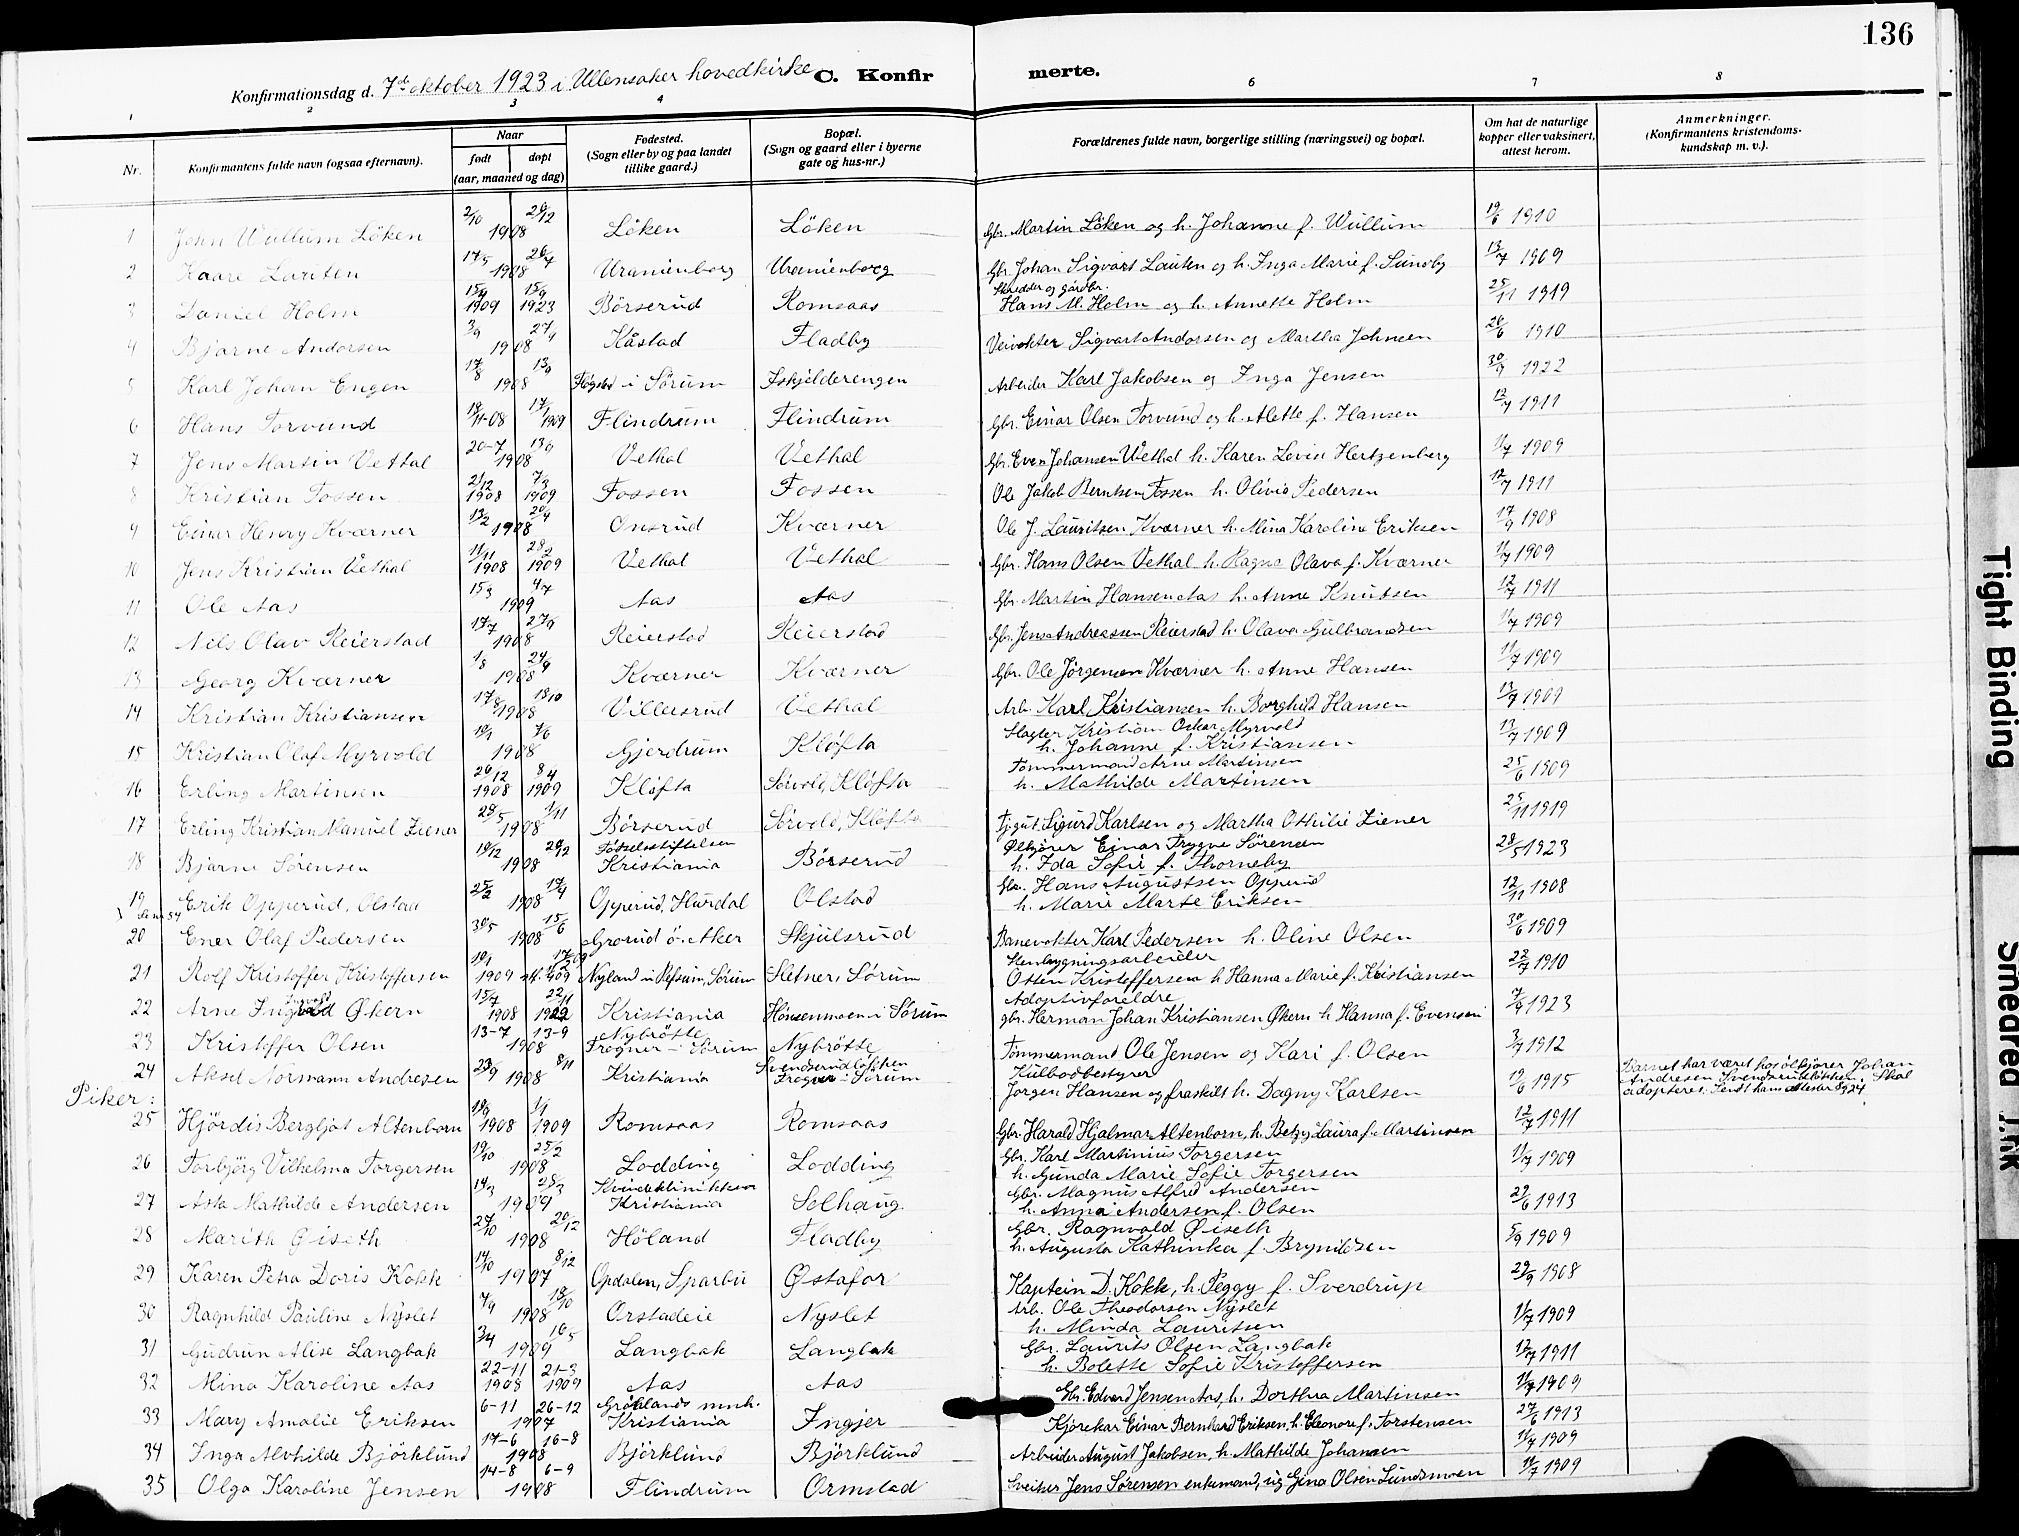 136
Konfirmationsdag d. 7de oktober 1923 i Ullensaker hovedkirke C. Konfirmerte.
1 2 3 4 6 7 8
Nr. Konfirmantens fulde navn (ogsaa efternavn). Naar født døpt (aar, maaned og dag) Fødested. (Sogn eller by og paa landet tillike gaard.) Bopæl. (Sogn og gaard eller i byerne gate og hus-nr.) Forældrenes fulde navn, borgerlige stilling (næringsvei) og bopæl. Om hat de naturlige kopper eller vaksinert, attest herom. Anmerkninger. (Konfirmantens kristendoms-kundskap m. v.).
1 John Wullum Löken 2/10 29/12 1908 Löken Löken Gbr. Martin Löken og h. Johanne f. Wullum 19/6 1910
2 Kaare Lauten 17/5 26/7 1908 Uranienborg Uranienborg Gbr. Johan Sigvart Lauten og h. Inga Marie f. Sundby 13/7 1909
3 Daniel Holm 1909 1923 Börserud Romsaas Skredder og gårdbr. Hans M. Holm og h. Annette Holm 25/11 1919
4 Bjarne Andersen 3/9 1908 Kåstad Fladby Veivokter Sigvart Andersen og Martha Johnsen 26/6 1910
5 Karl Johan Engen 17/8 1908 i Sörum Arbeider Karl Jakobsen og Inga Jensen 1922
6 Hans Torvund 11-08 17/1 1909 Flindrum Flindrum Gbr. Einar Olsen Torvund og h. Alette f. Hansen 12/7 1911
7 Jens Martin Vethal 20-7 13/9 1908 Vethal Vethal Gbr. Even Johansen Wethal h. Karen Lovise Hertzenberg 1/7 1909
8 Kristian Fossen 21/12 1908 7/3 1909 Fossen Fossen Ole Jakob Berntsen Fossen h. Olivia Pedersen 12/7 1911
9 Einar Henry Kværner 13/2 20/4 1908 Onsrud Kværner Ole J. Lauritsen Kværner h. Mina Karoline Eriksen 17/9 1908
10 Jens Kristian Vethal 11/11 1908 28/2 1909 Vethal Vethal Gbr. Hans Olsen Vethal h. Ragna Olava f. Kværner 1/7 1909
11 Ole Aas 15/3 4/7 1909 Aas Aas Gbr. Martin Hansen Aas h. Anne Knutsen 12/7 1911
12 Nils Olav Reierstad 17/7 27/9 1908 Reierstad Reierstad Gbr. Jens Andreassen Reierstad h. Olava Gulbrandsen 1/7 1909
13 Georg Kværner 1/8 1908 Kværner Kværner Gbr. Ole Jörgensen Kværner h. Anne Hansen 1/7 1909
14 Kristian Kristiansen 17/8 18/10 1908 Villersrud Vethal Arb. Karl Kristiansen h. Borghild Hansen 13/7 1909
15 Kristian Olaf Myrvold 7/6 1908 Gjerdrum Kløfta Slagter Kristian Oskar Myrvold h. Johanne f. Kristiansen 13/7 1909
16 Erling Martinsen 26/12 1908 8/4 1909 Kløfta Sörvold, Kløfta Tømmermand Arne Martinsen h. Mathilde Martinsen 25/6 1909
17 Erling Kristian Manuel Ziener 28/5 1/11 1908 Börserud Sörvold, Kløfta Tjgut. Sigurd Karlsen og Martha Othilie Ziener 25/11 1919
18 Bjarne Sörensen 1908 Fødselsstiftelsen Kristiania Börserud Ølkjører Einar Trygve Sörensen h. Ida Sofie f. Thorneby 28/5 1923
19 Erik Opperud, Olstad 25/2 17/4 1908 Opperud, Hurdal Olstad Gbr. Hans Augustsen Opperud h. Marie Marte Eriksen 12/11 1908
20 Ener Olaf Pedersen 30/5 15/6 1908 Grorud ö. Aker Skjulsrud Banevokter Karl Pedersen h. Oline Olsen 30/6 1909
21 Rolf Kristoffer Kristoffersen 10/1 1909 Nyland i Refsum, Sörum Sletner, Sörum Stenbygningsarbeider Otten Kristoffersen h Hanna Marie f. Kristiansen 22/7 1910
22 Arne Ingvald Økern 15/7 1908 22/11 Kristiania Hønsenmoen i Sörum Adoptivforeldre gbr. Herman Johan Kristiansen Økern h Hanna f. Evensen 7/9 1923
23 Kristoffer Olsen 13-7 13-9 1908 Nybrötte Frogner - Sörum Nybrötte Tømmermand Ole Jensen og Kari f. Olsen 3/7 1912
24 Aksel Normann Andresen 23/9 8/11 1908 Kristiania Svendserudløkken Frogner i Sörum Kulbodbestyrer Jørgen Hansen og fraskilt h. Dagny Karlsen 19/6 1915 Barnet har været hos ølkjører Johan Andresen, Svendsrudløkken. Skal adopteres. Sendt ham attester 8/9 24.
Piker:
25 Hjördis Bergljot Altenborn 1908 1/1 1909 Romsaas Romsaas Gbr. Harald Hjalmar Altenborn, h. Betzy Laura f. Martinsen 12/7 1911
26 Torbjörg Vilhelma Torgersen 19/10 25/2 1908 Lodding Lodding Gbr. Karl Martinius Torgersen h. Gunda Marie Sofie Torgersen 1/7 1909
27 Asta Mathilde Andersen 14/3 28/3 1909 Kvindeklinikken Kristiania Solhaug. Gbr. Magnus Alfred Andersen h. Anna Andersen f. Olsen 27/6 1913
28 Marith Øiseth 27/10 20/12 1908 Höland Fladby Gbr. Ragnvald Øiseth h. Augusta Kathinka f. Brynildsen 5/9 1909
29 Karen Petra Doris Kokk 14/10 8/12 1907 Opdalen, Sparbu Østafor Kaptein D. Kokk, h. Peggy f. Sverdrup 29/9 1908
30 Ragnhild Pauline Nyslet 7/9 18/10 1908 Orstadeie Nyslet Arb. Ole Theodorsen Nyslet h. Minda Lauritsen 1/7 1909
31 Gudrun Alise Langbak 3/4 16/5 1909 Langbak Langbak Gbr. Laurits Olsen Langbak h. Bolette Sofie Kristoffersen 12/7 1911
32 Mina Karoline Aas 22-11 1908 21-3 1909 Aas Aas Gbr. Edvard Jensen Aas, h. Dorthea Martinsen 1/7 1909
33 Mary Amalie Eriksen 6-11 26-12 1907 Grönlands mnh. Kristiania Ingjer Kjørekar Einar Bernhard Eriksen, h. Eleonore f. Torstensen 27/6 1913
34 Inga Alvhilde Björklund 17-6 16-8 1908 Björklund Björklund Arbeider August Jakobsen, h. Mathilde Johansen 1/7 1909
35 Olga Karoline Jensen 14-8 6-9 1908 Flindrum Ormstad Sveitser Jens Sørensen enkemand, og Gina Olsen Lundsmoen 1/7 1909
Tight Binding
Smeared Ink